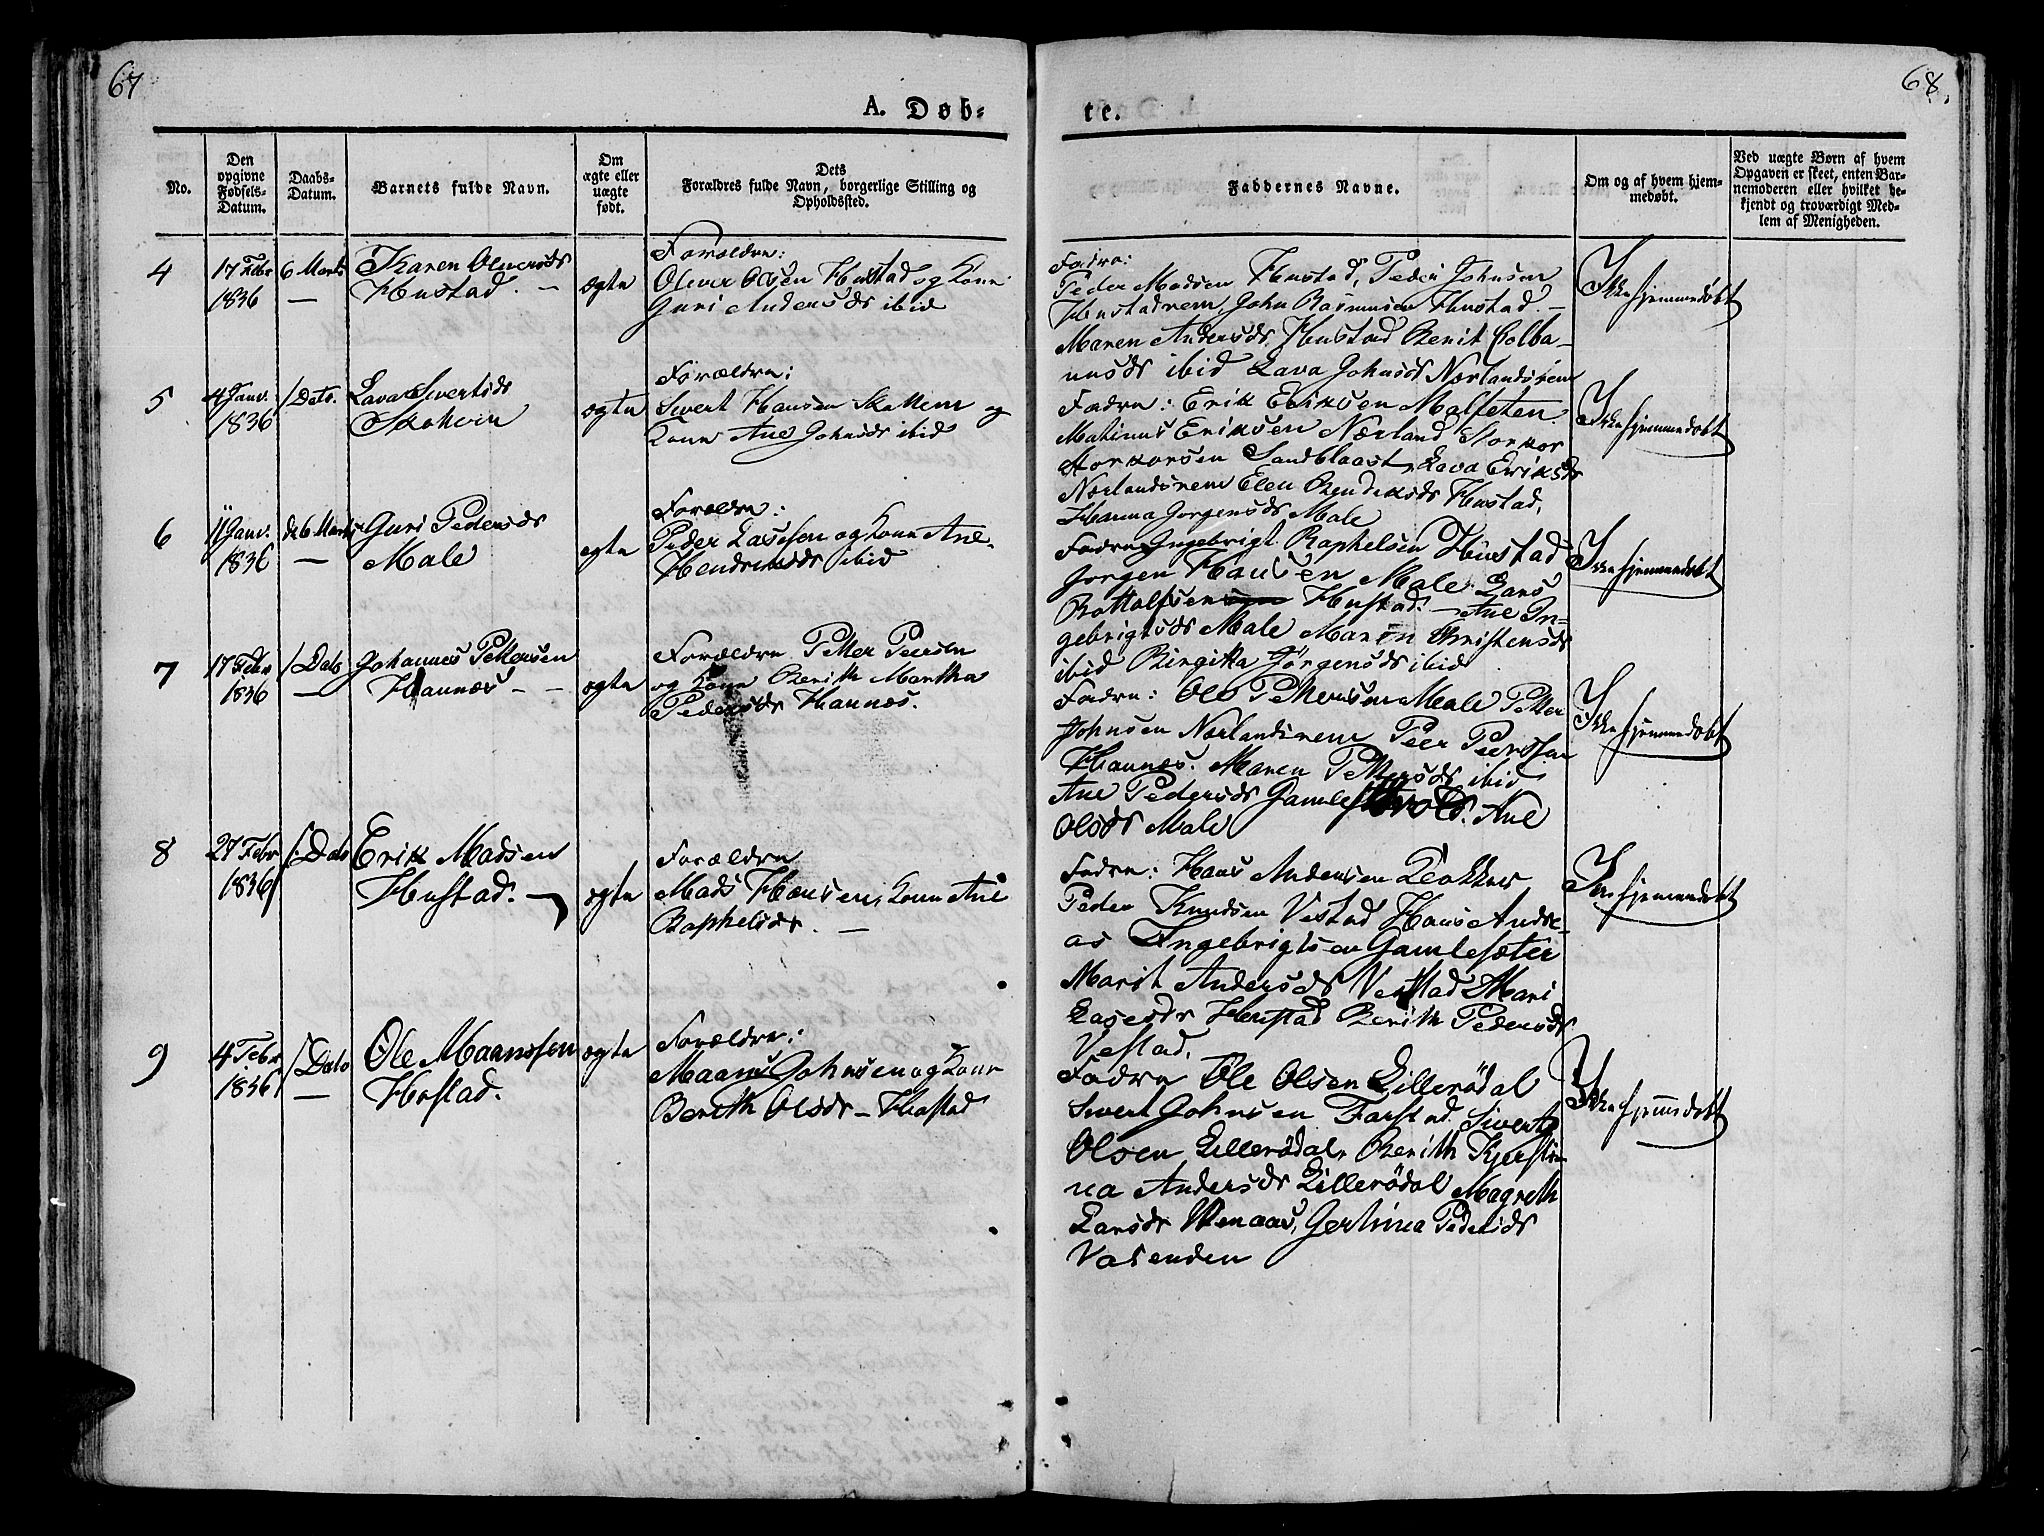 67
68.
A. Døb-
te.
No.
Den opgivne Fødsels-Datum.
Daabs-Datum.
Barnets fulde Navn.
Om ægte eller uægte født.
Dets Forældres fulde Navn, borgerlige Stilling og Opholdssted.
Faddernes Navne.
Om og af hvem hjemmedøbt.
Ved uægte Børn af hvem Opgaven er skeet, enten Barnemoderen eller hvilket bekjendt og troværdigt Medlem af Menigheden.
4
17 Febr
1836
6 Marts
—
Karen Oliversdr
Hustad. —
ægte
Forældre:
Oliver Olsen Hustad og Kone
Guri Andersdr ibid
Fadre:
Peder Madsen Hustad, Peder Johnsen
Hustadnem John Rasmusen Hustad. —
Maren Andersdr Hustad Berit Colba-
nusdr ibid Lava Johnsdr Nærlandsrem
Ikke hjemmedøbt
5
4 Janv.
1836
/Dato.
Lava Sivertsdr
ægte
Forældre:
Sivert Hansen og
Kone Ane Johnsdr ibid
Fadre: Erik Eriksen Malfeten
Matinus Eriksen Nærland Storkor
Storkorsen Sandblaast, Lava Eriksdr
Nærlandsrem Elen Bendiksdr Hustad,
Hanna Jørgensdr Male
Ikke hjemmedøbt
6
11 Janv.
1836
d. 6 Marts
—
Guri Pedersdr
Male
ægte
Forældre:
Peder Lassesen og Kone Ane
Hendriksdr ibid
Fadre Ingebrigt Raphelsen Hustad
Jørgen Hansen Male Lars
Bottolfsen Hustad. — Ane In-
gebrigtsdr Male Maren Christensdr
ibid Birgitta Jørgensdr ibid
Ikke hjemmedøbt
7
17 Febr
1836
/Dato
—
Johannes Pettersen
Haunæs — —
ægte
Forældre Petter Peersen
og Kone Berith Martha
Pedersdr Haunæs.
Fadre: Ole Pettersen Male Petter
Johnsen Nærlandsrem Peer Peersen
Haunæs. Maren Pettersdr ibid
Ane Pedersdr Ane
Olsdr Male
Ikke hjemmedøbt
8
27 Febr
1836
/:Dato
Erik Madsen
Hustad. —
ægte
Forældre
Mads Hansen, Kone Ane
Raphelsdr. —
Fadre: Hans Andersen
Peder Knudsen Vestad Hans Andre-
as Ingebrigtsen Gamlesæter
Marit Andersdr Vestad Mari
Lasesdr Hustad Berith Pedersdr
Vestad.
Ikke hjemmedøbt
9
4 Febr
1836
/Dato
—
Ole Maanssen
Hostad.
ægte
Forældre:
Maans Johnsen og Kone
Berith Olsdr — Hostad
Fadre Ole Olsen Lillerødal
Sivert Johnsen Farstad Sivert
Olsen Lillerødal, Berith Kjersti-
na Andersdr Lillerødal Magreth
Larsdr Gertina Pedersdr
Vasenden
Ikke hjemmedøbt